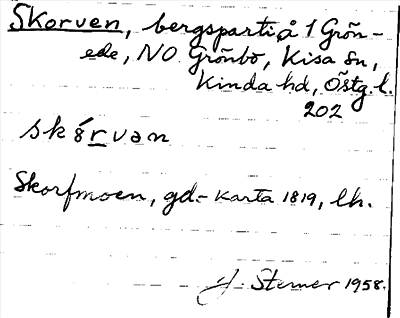 Skorven, bergsparti å 1 Grön-
ede, NO Grönbo, Kisa sn,
Kinda hd, Östg. l.
202
skǒrvan
Skorfmoen, gd.- karta 1819, lh.
Sterner 1958.